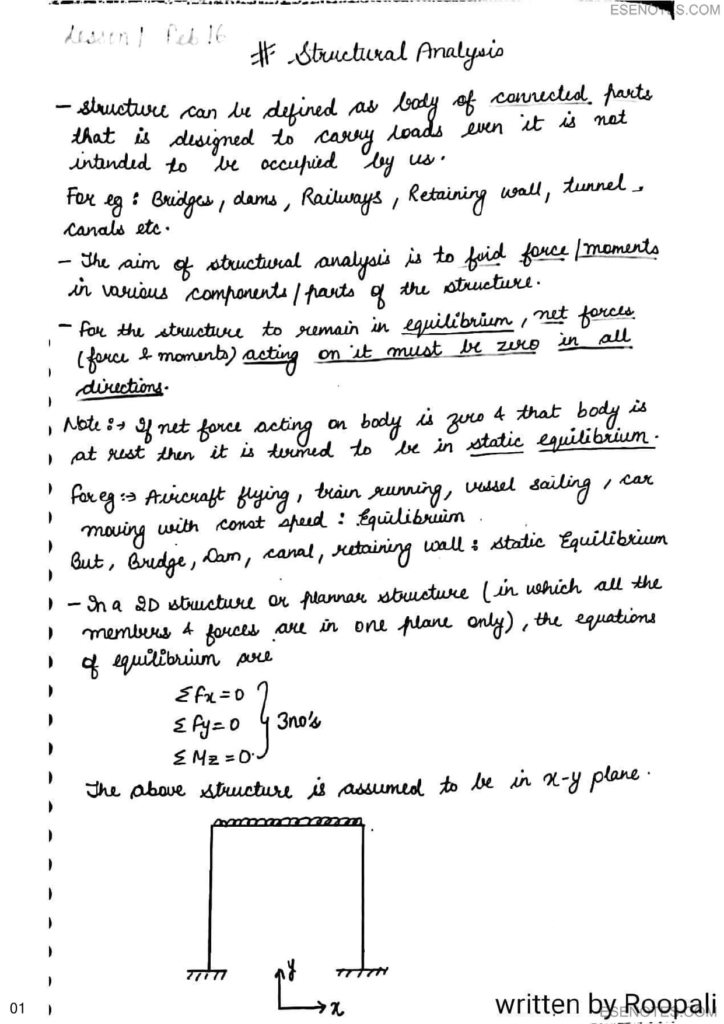 ESENOTES.COM
Lesson 1 Feb 16
# Structural Analysis
- structure can be defined as body of connected parts
that is designed to carry loads even it is not
intended to be occupied by us.
For eg : Bridges, dams, Railways, Retaining wall, tunnel,
canals etc.
- The aim of structural analysis is to find force/moments
in various components/parts of the structure.
- For the structure to remain in equilibrium, net forces
(force & moments) acting on it must be zero in all
directions.
Note :→ If net force acting on body is zero & that body is
at rest then it is termed to be in static equilibrium.
For eg :→ Aircraft flying, train running, vessel sailing, car
moving with const speed : Equilibrium.
But, Bridge, Dam, canal, retaining wall : static Equilibrium
- In a 2D structure or plannar structure (in which all the
members & forces are in one plane only), the equations
of equilibrium are
ΣFx = 0
ΣFy = 0 } 3no's
ΣMz = 0.
The above structure is assumed to be in x-y plane.
y
x
01
written by Roopali
ESENOTES.COM